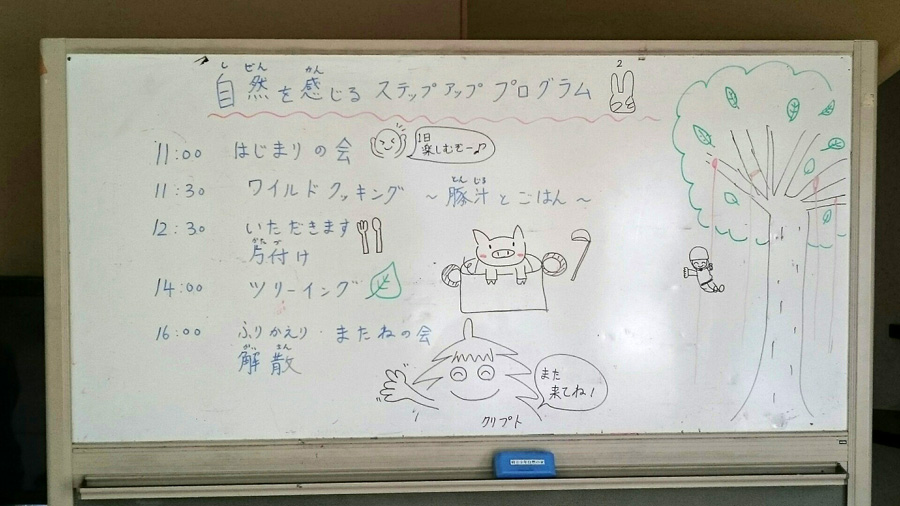 自然を感じる ステップアップ プログラム
しぜん かん
2
11:00 はじまりの会
1日
楽しむぞー♪
11:30 ワイルドクッキング ～豚汁とごはん～
とん じる
12:30 いただきます
片付け
かた づ
14:00 ツリーイング
16:00 ふりかえり・またねの会
解散
かい さん
また
来てね!
クリプト